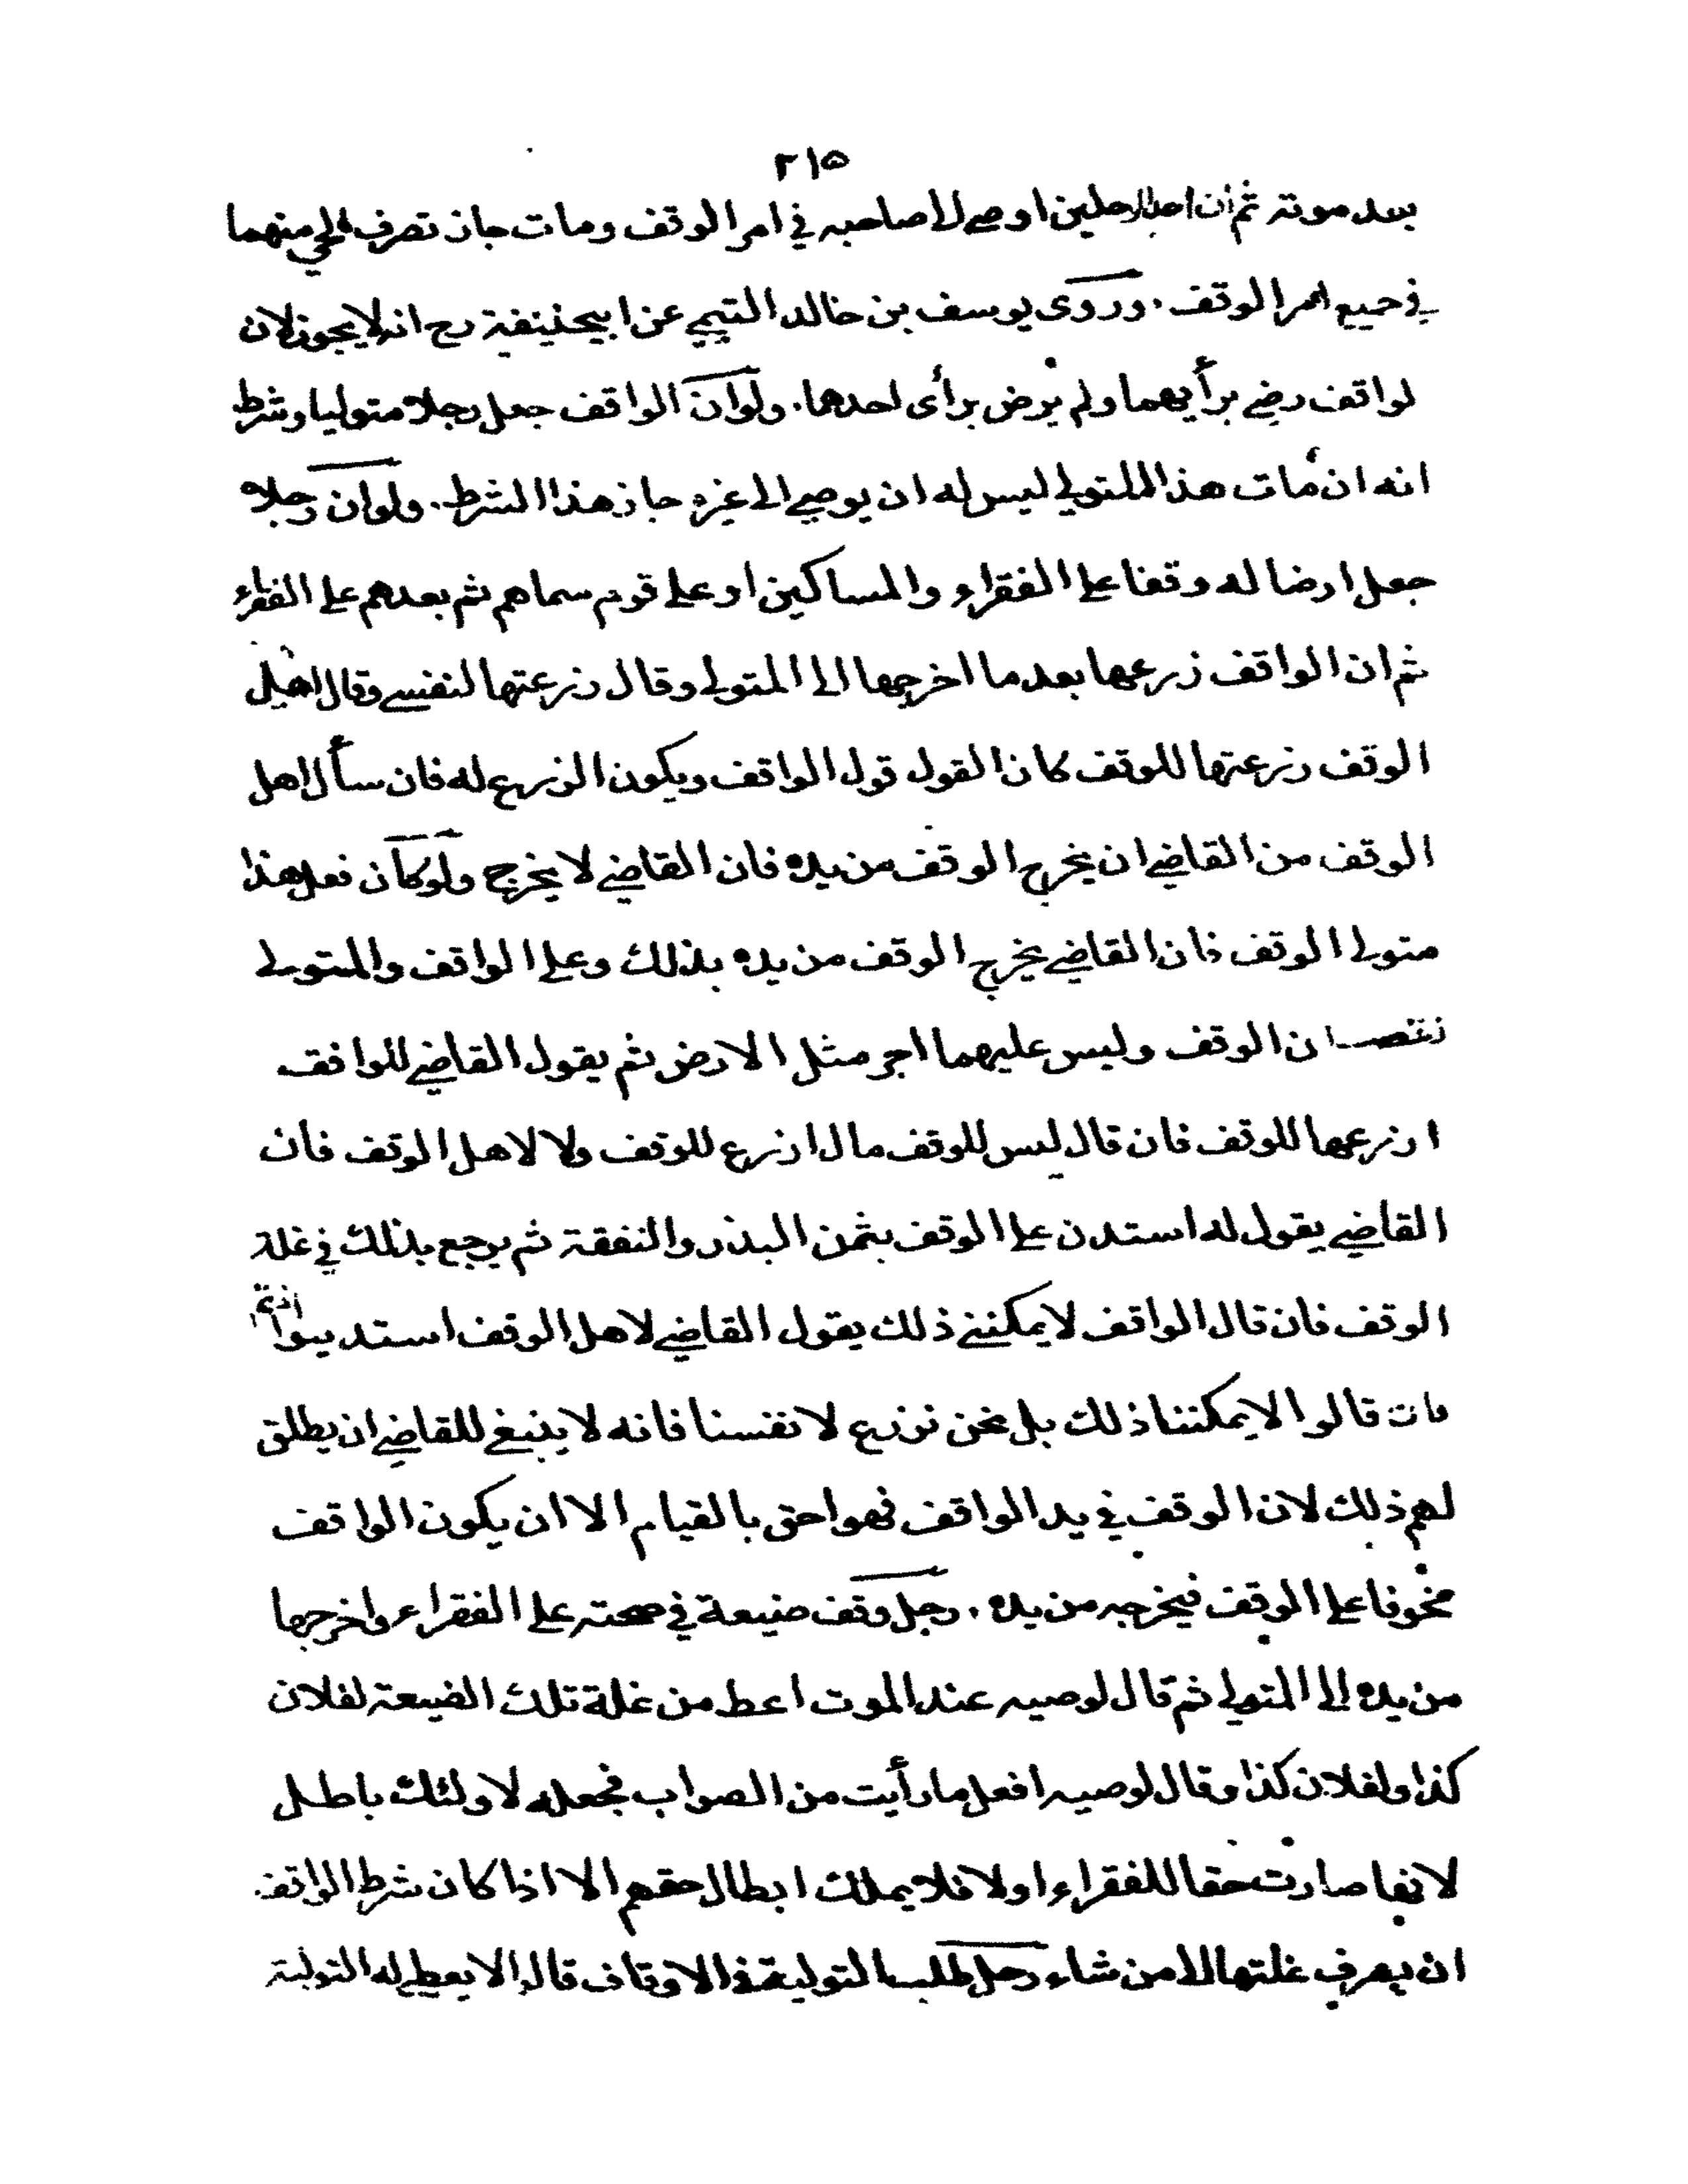 ٢١٥
بعد موته ثم ان احد الرجلين اوصى الى صاحبه في امر الوقف ومات جاز تصرف الحي منهما
في جميع امر الوقف . وروى يوسف بن خالد التيمي عن ابيحنيفة رح انه لا يجوز لان
لواقف رضي برأيهما ولم يرض برأى احدهما . ولو ان الواقف جعل رجلا متوليا وشرط
انه ان مات هذا المتولي ليس له ان يوصي الى غيره جاز هذا الشرط . ولو ان رجلا
جعل ارضا له وقفا على الفقراء والمساكين او على قوم سماهم ثم بعدهم على الفقراء
ثم ان الواقف زرعها بعد ما اخرجها الى المتولي وقال زرعتها لنفسي وقال اهل
الوقف زرعتها للوقف كان القول قول الواقف ويكون الزرع له فان سأل اهل
الوقف من القاضي ان يخرج الوقف من يده فان القاضي لا يخرج ولو كان فعل هذا
متولى الوقف فان القاضي يخرج الوقف من يده بذلك وعلى الواقف والمتولى
نقصان الوقف وليس عليهما اجر مثل الارض ثم يقول القاضي للواقف
ازرعها للوقف فان قال ليس للوقف مال ازرع للوقف ولا لاهل الوقف فان
القاضي يقول له استدن على الوقف بثمن البذر والنفقة ثم يرجع بذلك في غلة
الوقف فان قال الواقف لا يمكنني ذلك يقول القاضي لاهل الوقف استدينوا انتم
فان قالوا لا يمكننا ذلك بل نحن نزرع لانفسنا فانه لا ينبغي للقاضي ان يطلق
لهم ذلك لان الوقف في يد الواقف فهو احق بالقيام الا ان يكون الواقف
مخوفا على الوقف فيخرجه من يده . رجل وقف ضيعة في صحته على الفقراء واخرجها
من يده الى المتولي ثم قال لوصيه عند الموت اعط من غلة تلك الضيعة لفلان
كذا ولفلان كذا وقال لوصيه افعل ما رأيت من الصواب فجعله لاولئك باطل
لانها صارت حقا للفقراء اولا فلا يملك ابطال حقهم الا اذا كان شرط الواقف
ان يصرف غلتها الى من شاء رجل طلب التولية في الاوقاف قالوا لا يعطي له التولية